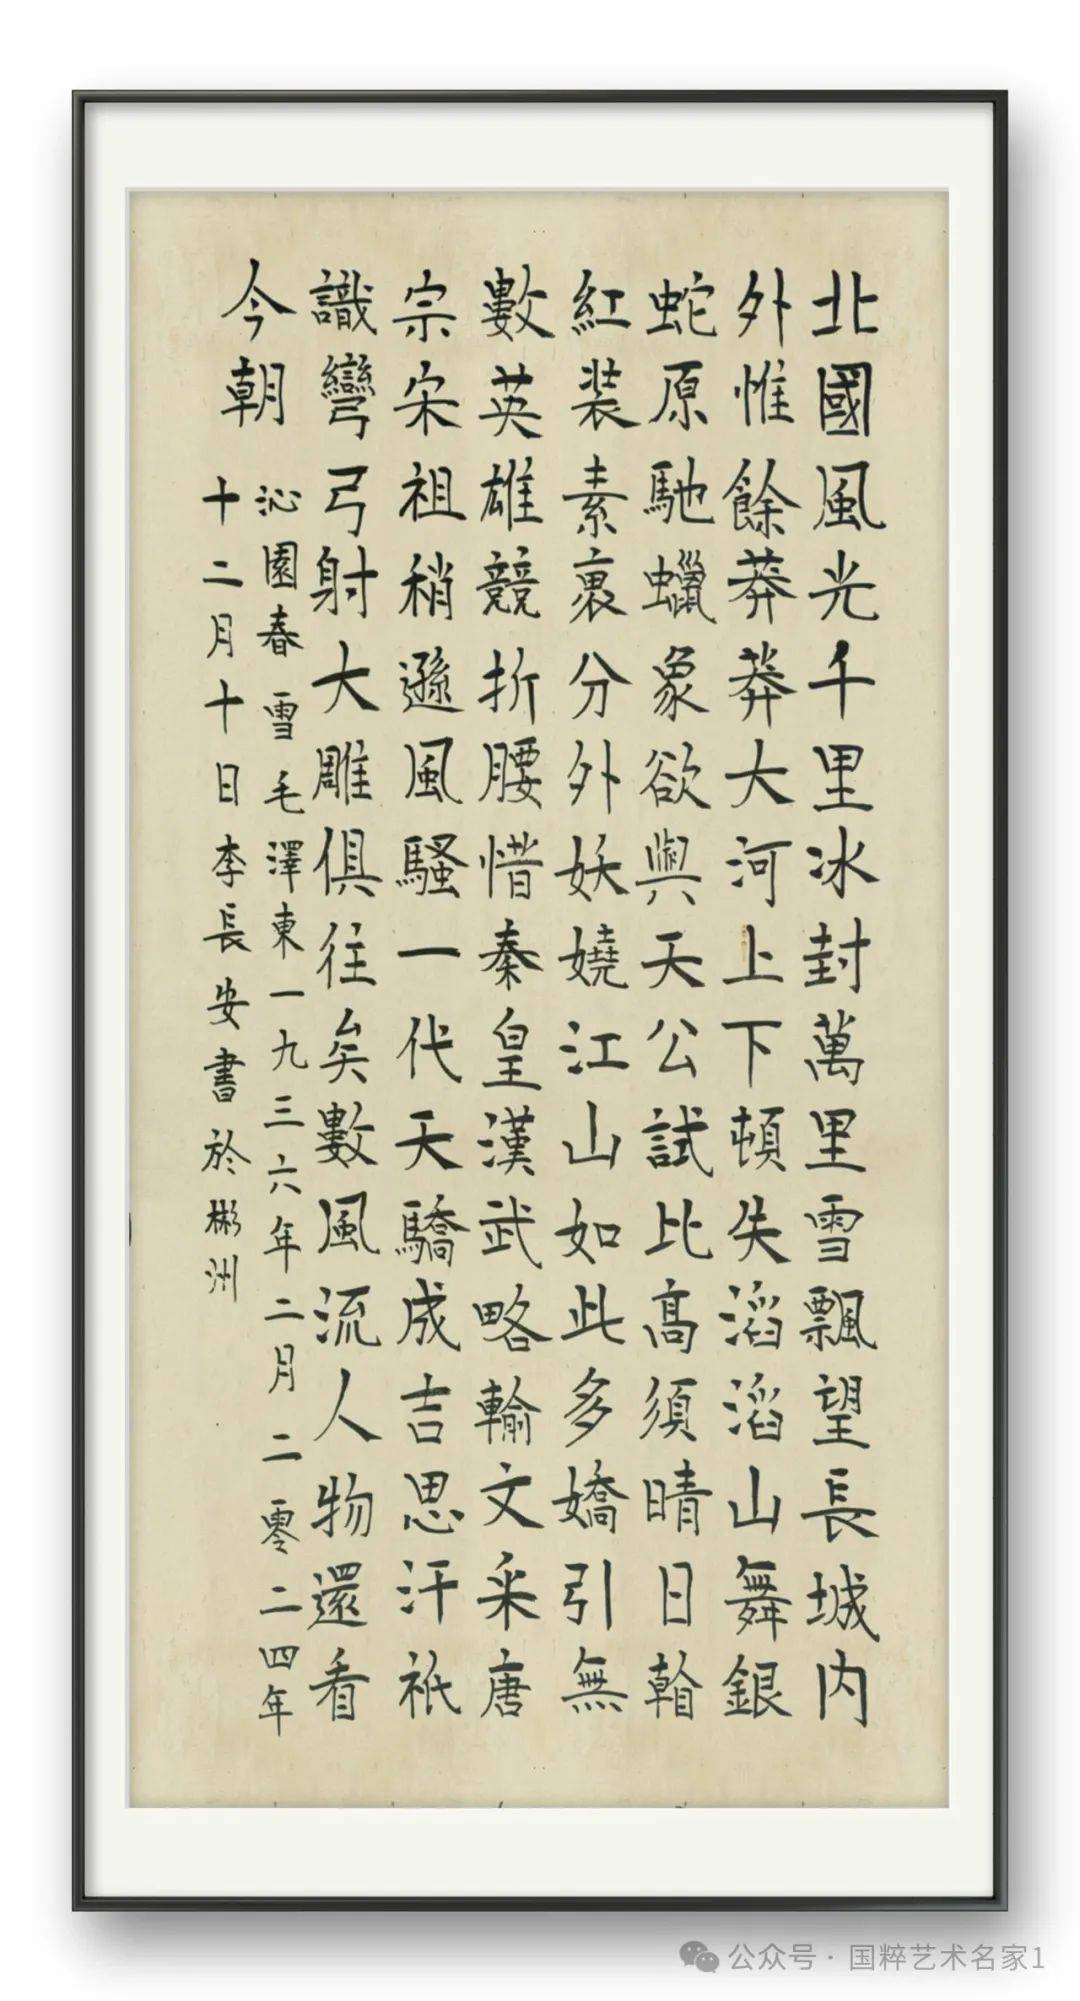 北國風光千里冰封萬里雪飄望長城内
外惟餘莽莽大河上下頓失滔滔山舞銀
蛇原馳蠟象欲與天公試比高須晴日看
紅装素裹分外妖嬈江山如此多嬌引無
數英雄競折腰惜秦皇漢武略輸文采唐
宗宋祖稍遜風騷一代天驕成吉思汗祇
識彎弓射大雕俱往矣數風流人物還看
今朝
沁園春 雪 毛澤東一九三六年二月 二零二四年
十二月十日李長安書於彬洲
公众号 · 国粹艺术名家1